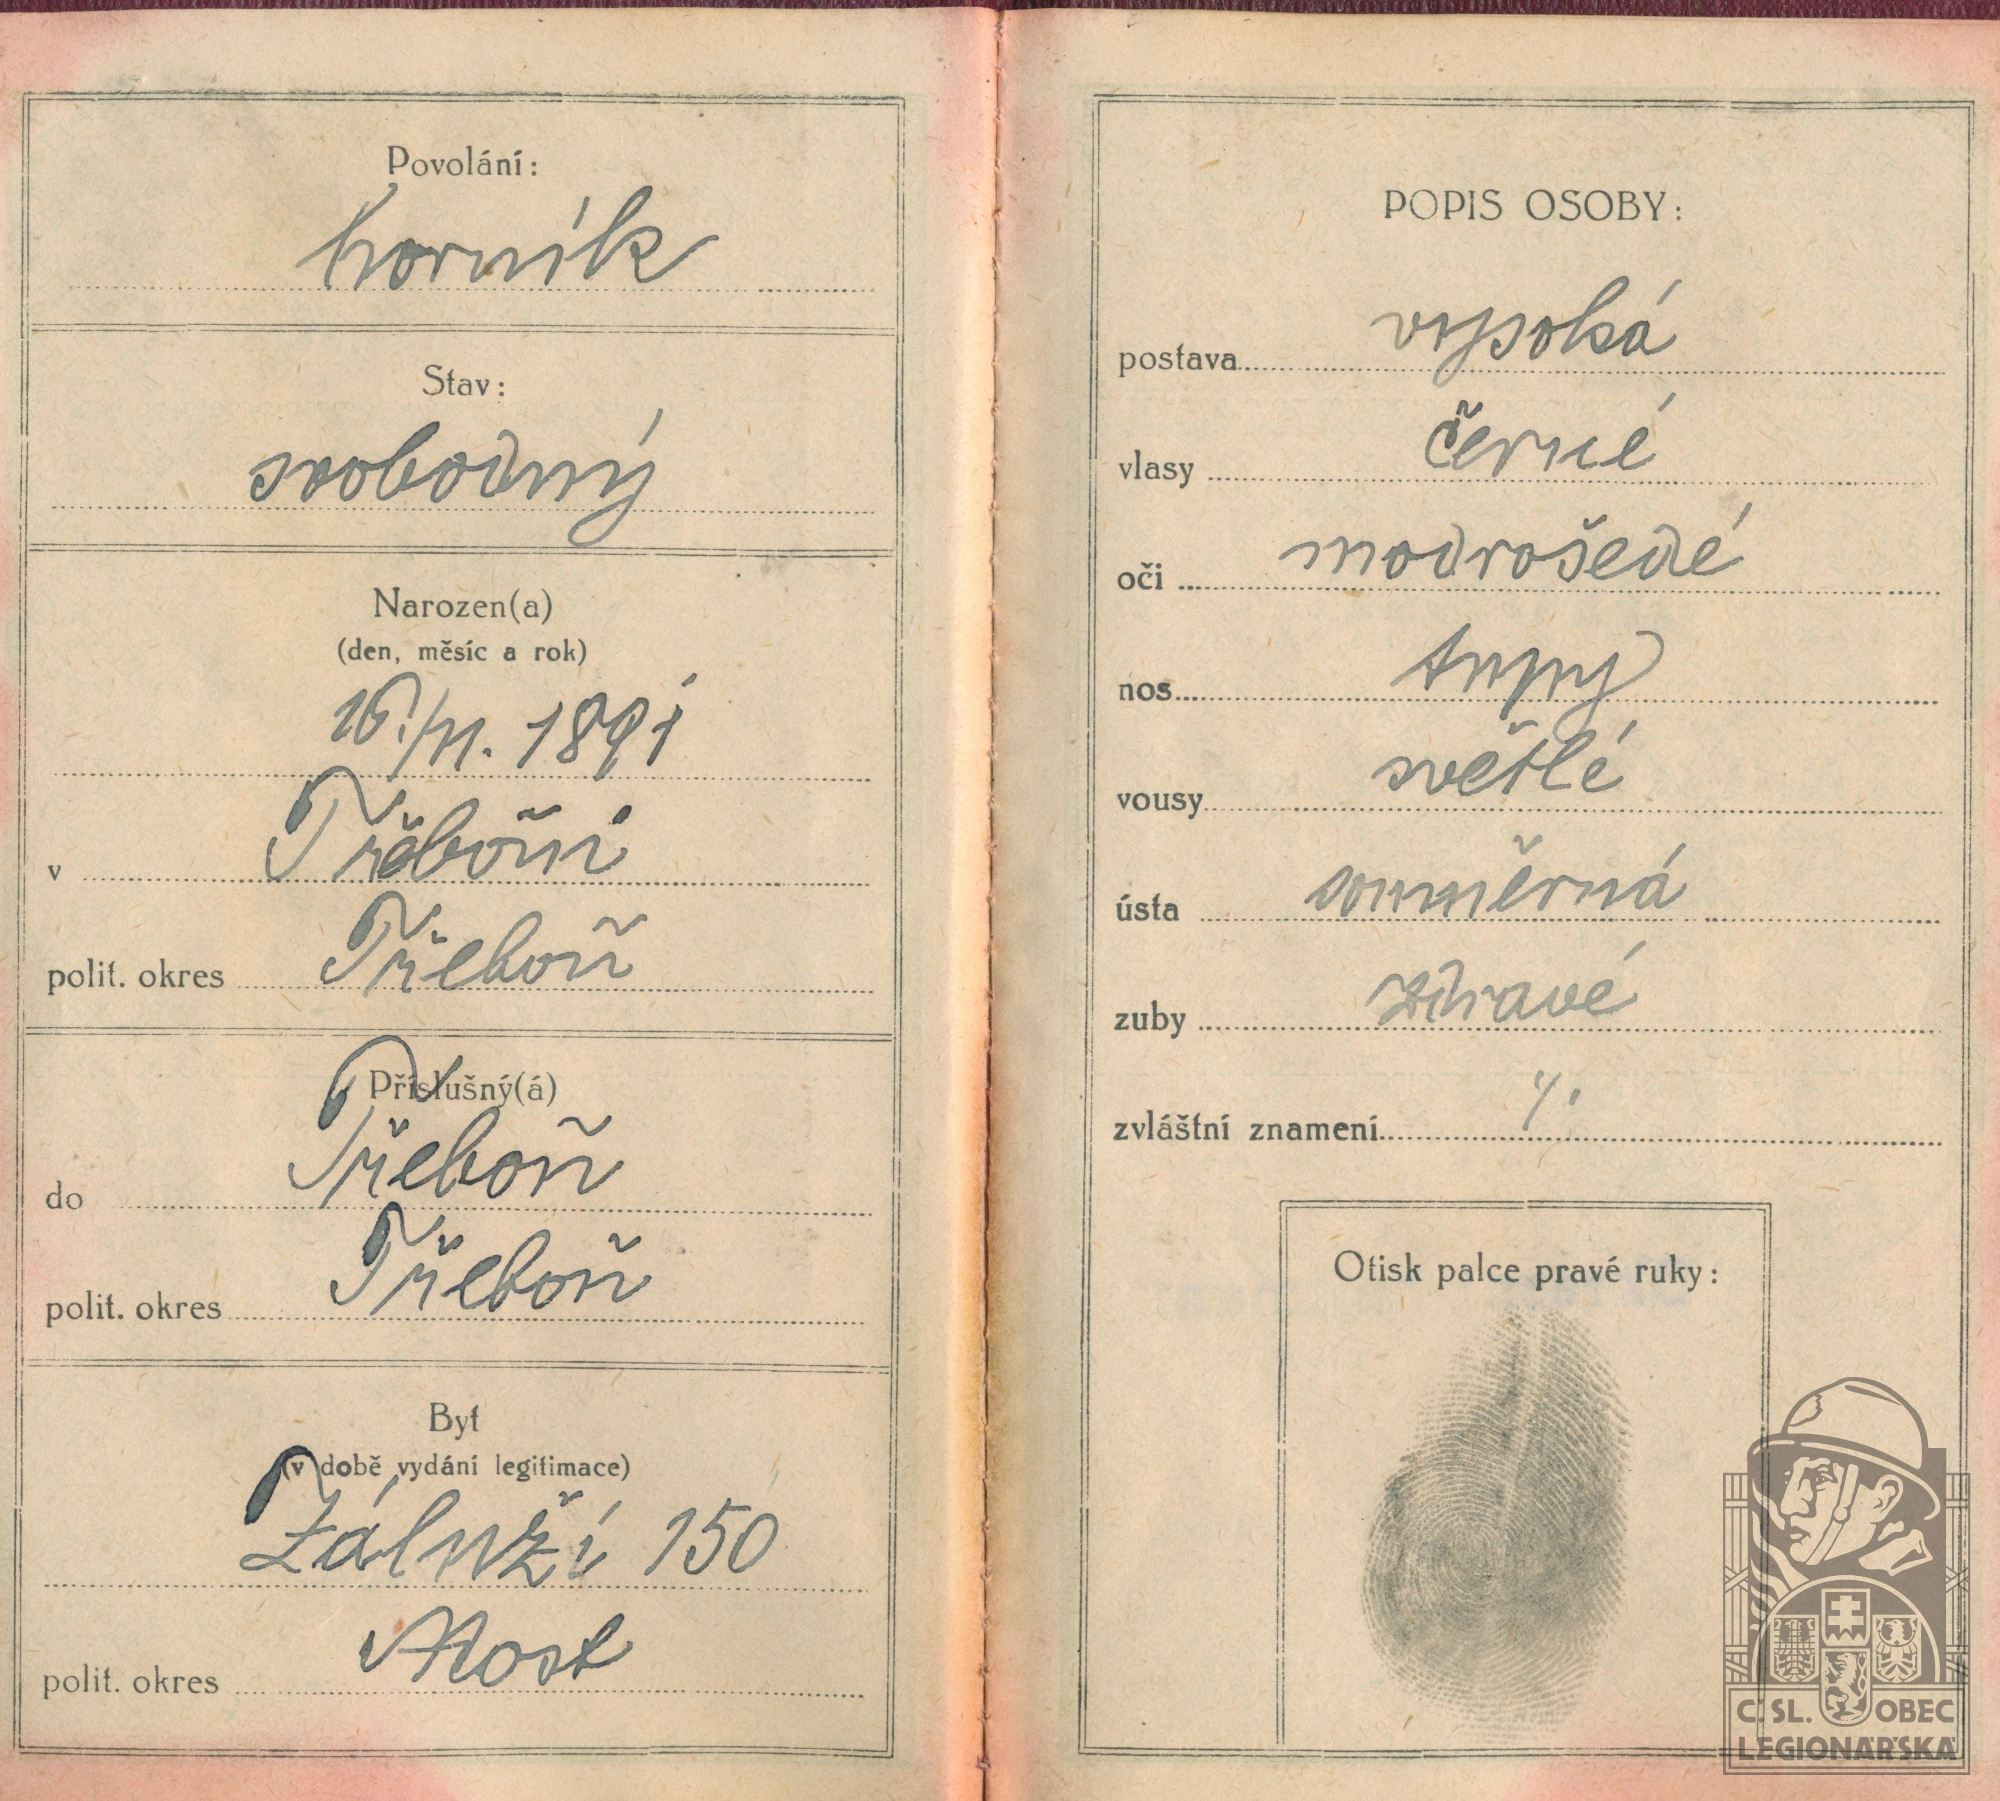 Povolání:
horník
Stav:
svobodný
Narozen(a)
(den, měsíc a rok)
16./11. 1891
v Třeboni
polit. okres Třeboň
Příslušný(á)
do Třeboň
polit. okres Třeboň
Byt
(v době vydání legitimace)
Záluží 150
polit. okres Most
POPIS OSOBY:
postava vysoká
vlasy černé
oči modrošedé
nos tupý
vousy světlé
ústa souměrná
zuby zdravé
zvláštní znamení
Otisk palce pravé ruky:
Č. SL. OBEC
LEGIONÁŘSKÁ